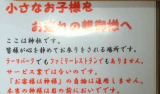 小さなお子様を
お連れの親御様へ
ここは神社です。
皆様が心を静めてお参りをされる場所です。
テーマパークでもファミリーレストランでもありません。
サービス業ではないのです。
「お客様は神様」の道理は通用しません。
本専の神様は目の前です。